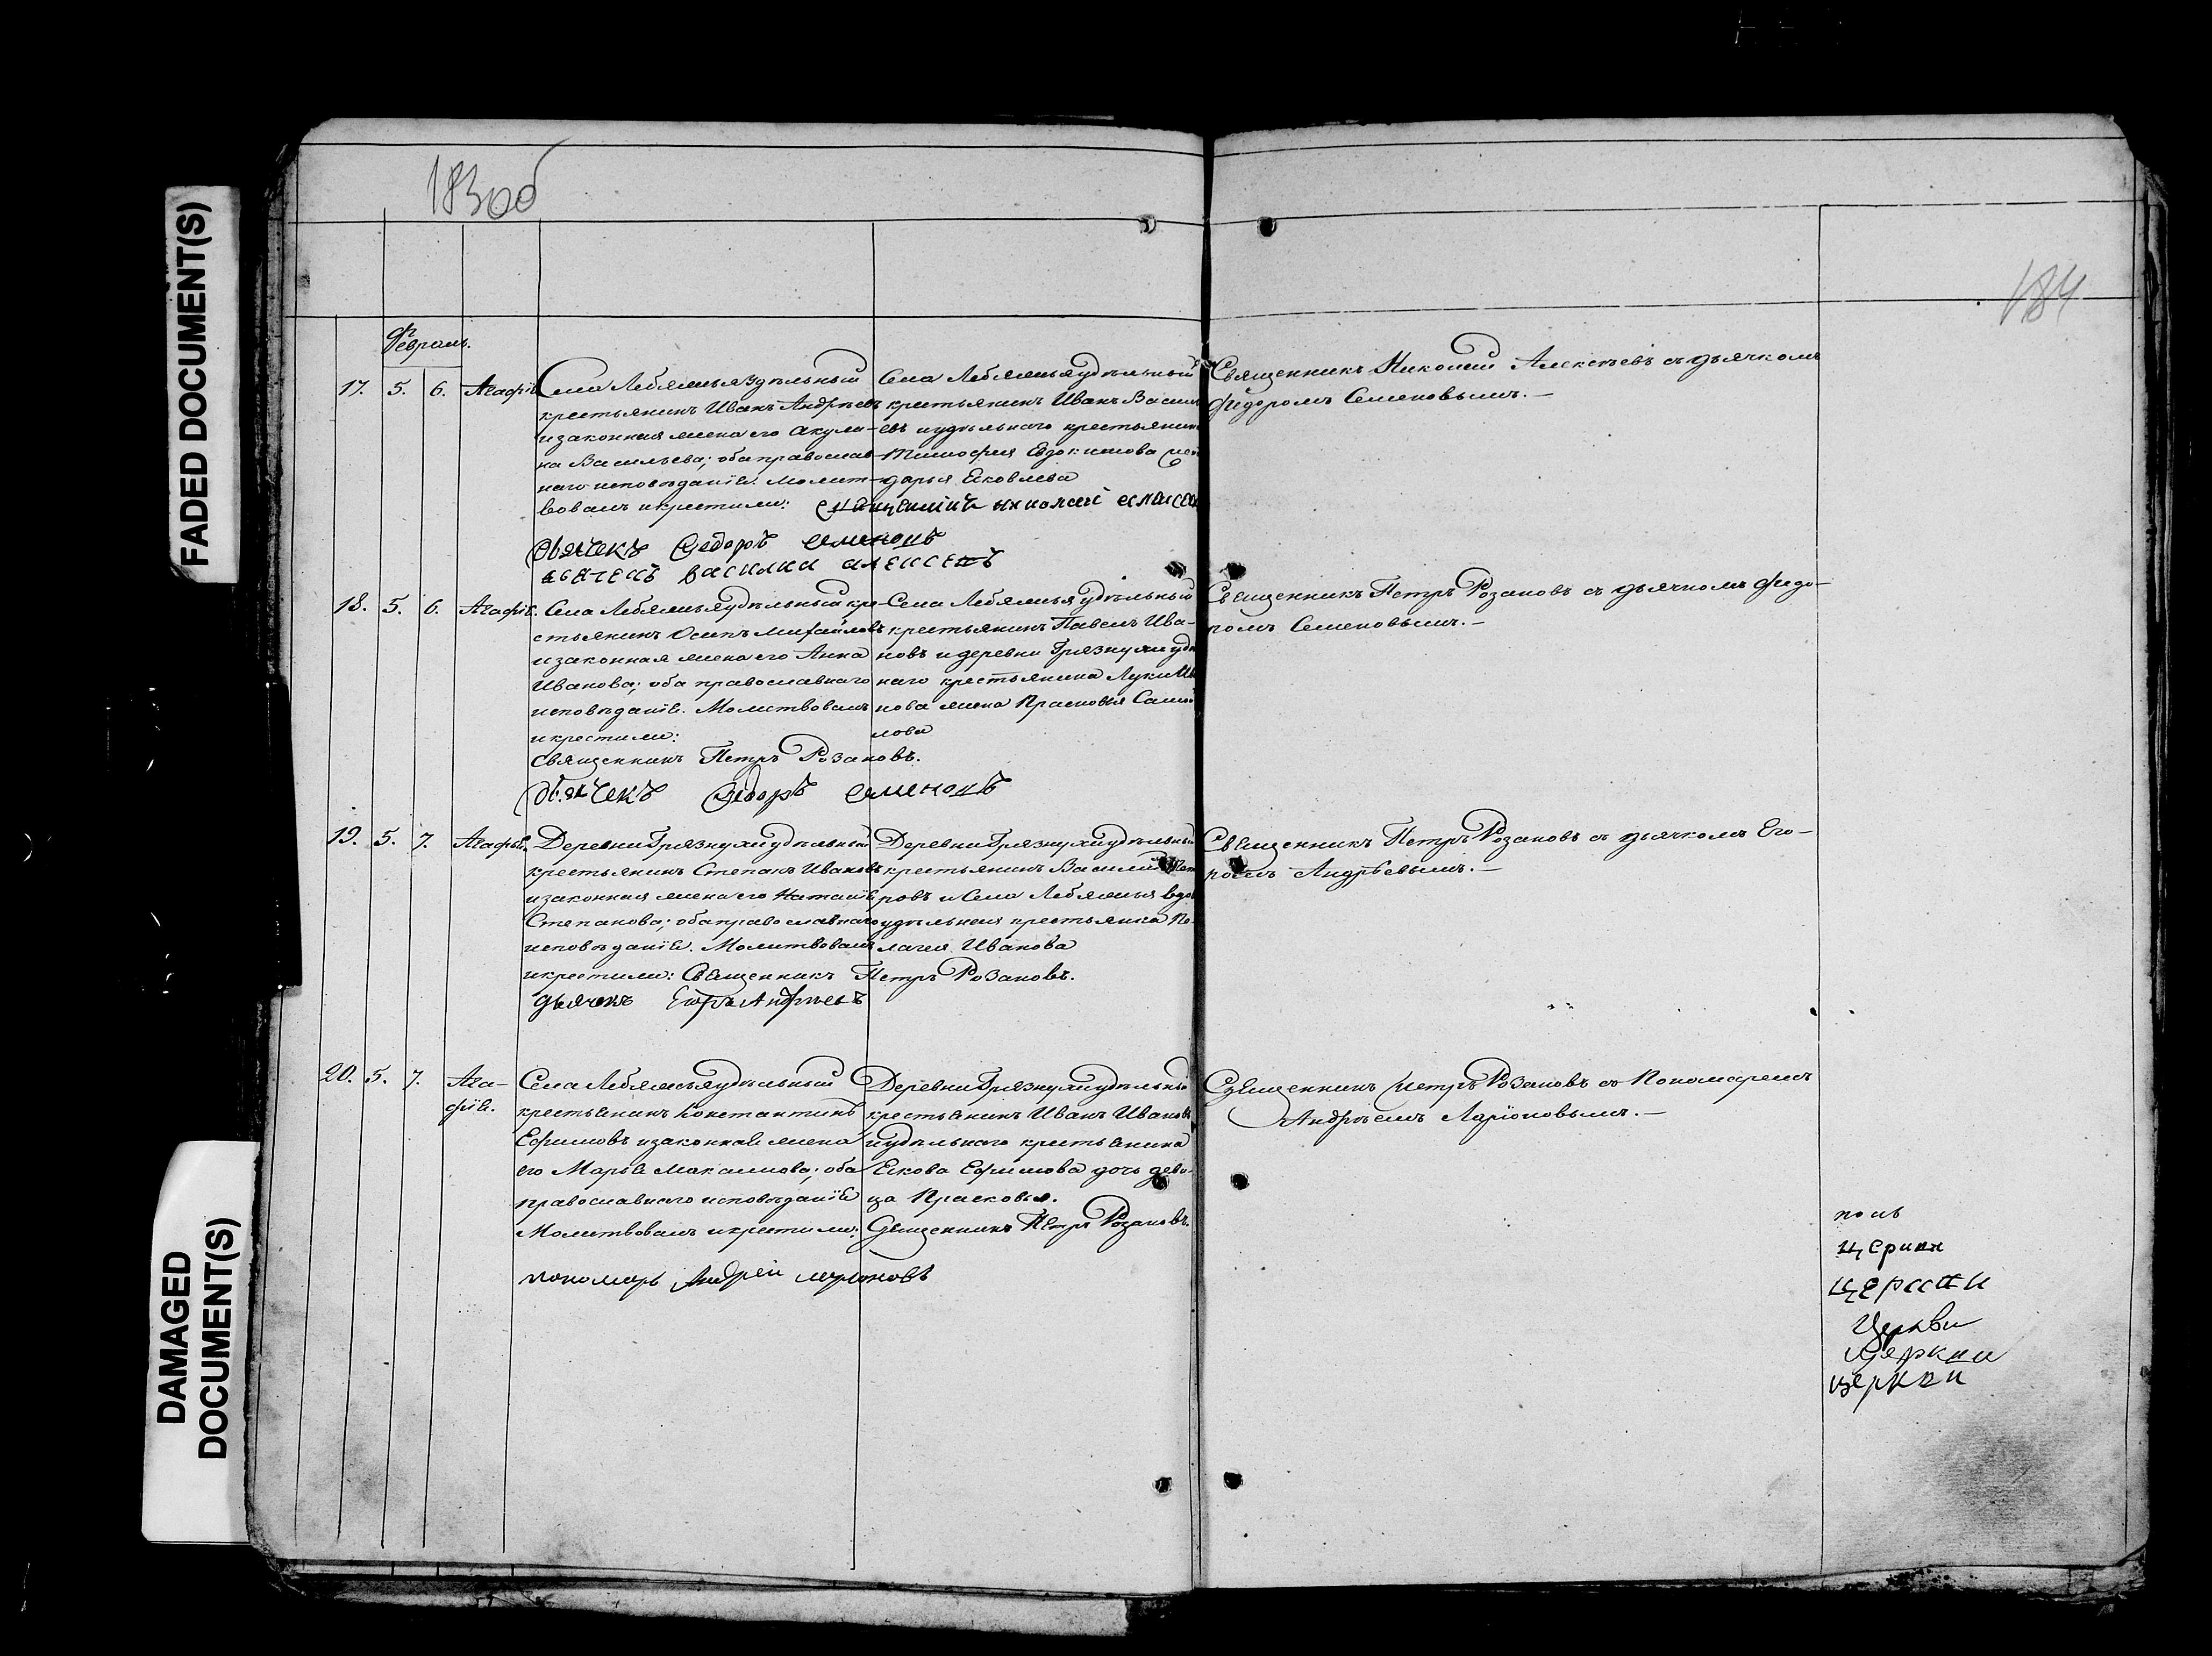 FADED DOCUMENT(S)
DAMAGED
DOCUMENT(S)
183об
184
Февраль.
17. 5. 6. Агафія
Села Лебяжья удѣльный
крестьянинъ Иванъ Андреевъ
и законная жена его Акули-
на Васильева; оба православ-
наго исповѣданія. Молит-
вовалъ и крестили:
Села Лебяжья удѣльный
крестьянинъ Иванъ Васил
евъ и удѣльнаго крестьянин
Тимофея Евдокимова
Дарья Яковлева
Священникъ Николай Алексѣевъ съ дьячкомъ
Федоромъ Семеновымъ.—
священникъ николай алексе
дьячекъ Федоръ семеновъ
дьячекъ василии алексеевъ
18. 5. 6. Агафія.
Села Лебяжья удѣльный кре-
стьянинъ Осипъ Михайловъ
и законная жена его Анна
Иванова; оба православнаго
исповѣданія. Молитвовалъ
и крестили:
Села Лебяжья удѣльный
крестьянинъ Павелъ Ива-
новъ и деревни Грязнухи удѣ
наго крестьянина Луки
нова жена Прасковья Самой
лова
Священникъ Петръ Розановъ съ дьячкомъ Федо-
ромъ Семеновымъ.—
Священникъ Петръ Розановъ.
дьячекъ Федоръ семеновъ
19. 5. 7. Агафья
Деревни Грязнухи удѣльный
крестьянинъ Степанъ Ивановъ
и законная жена его Наталія
Степанова; оба православнаго
исповѣданія. Молитвовалъ
и крестили: Священникъ Петръ Розановъ.
дьячекъ Егоръ Андреевъ
Деревни Грязнухи удѣльный
крестьянинъ Василий Пет
ровъ и Села Лебяжья вдо
удѣльная крестьянка Пе-
лагея Иванова
Священникъ Петръ Розановъ съ дьячкомъ Его-
ромъ Андреевымъ.—
20. 5. 7. Ага-
фія.
Села Лебяжья удѣльный
крестьянинъ Константинъ
Ефимовъ и законная жена
его Марья Максимова; оба
православнаго исповѣданія
Молитвовалъ и крестили:
Деревни Грязнухи удѣльный
крестьянинъ Иванъ Ивановъ
и удѣльнаго крестьянина
Якова Ефимова дочь деви-
ца Прасковья.
Священникъ Петръ Розановъ.
пономарь Андрей ларионовъ
Священникъ Петръ Розановъ съ Пономаремъ
Андреемъ Ларіоновымъ.—
церкви
церкви
Церкви
Церкви
церкви